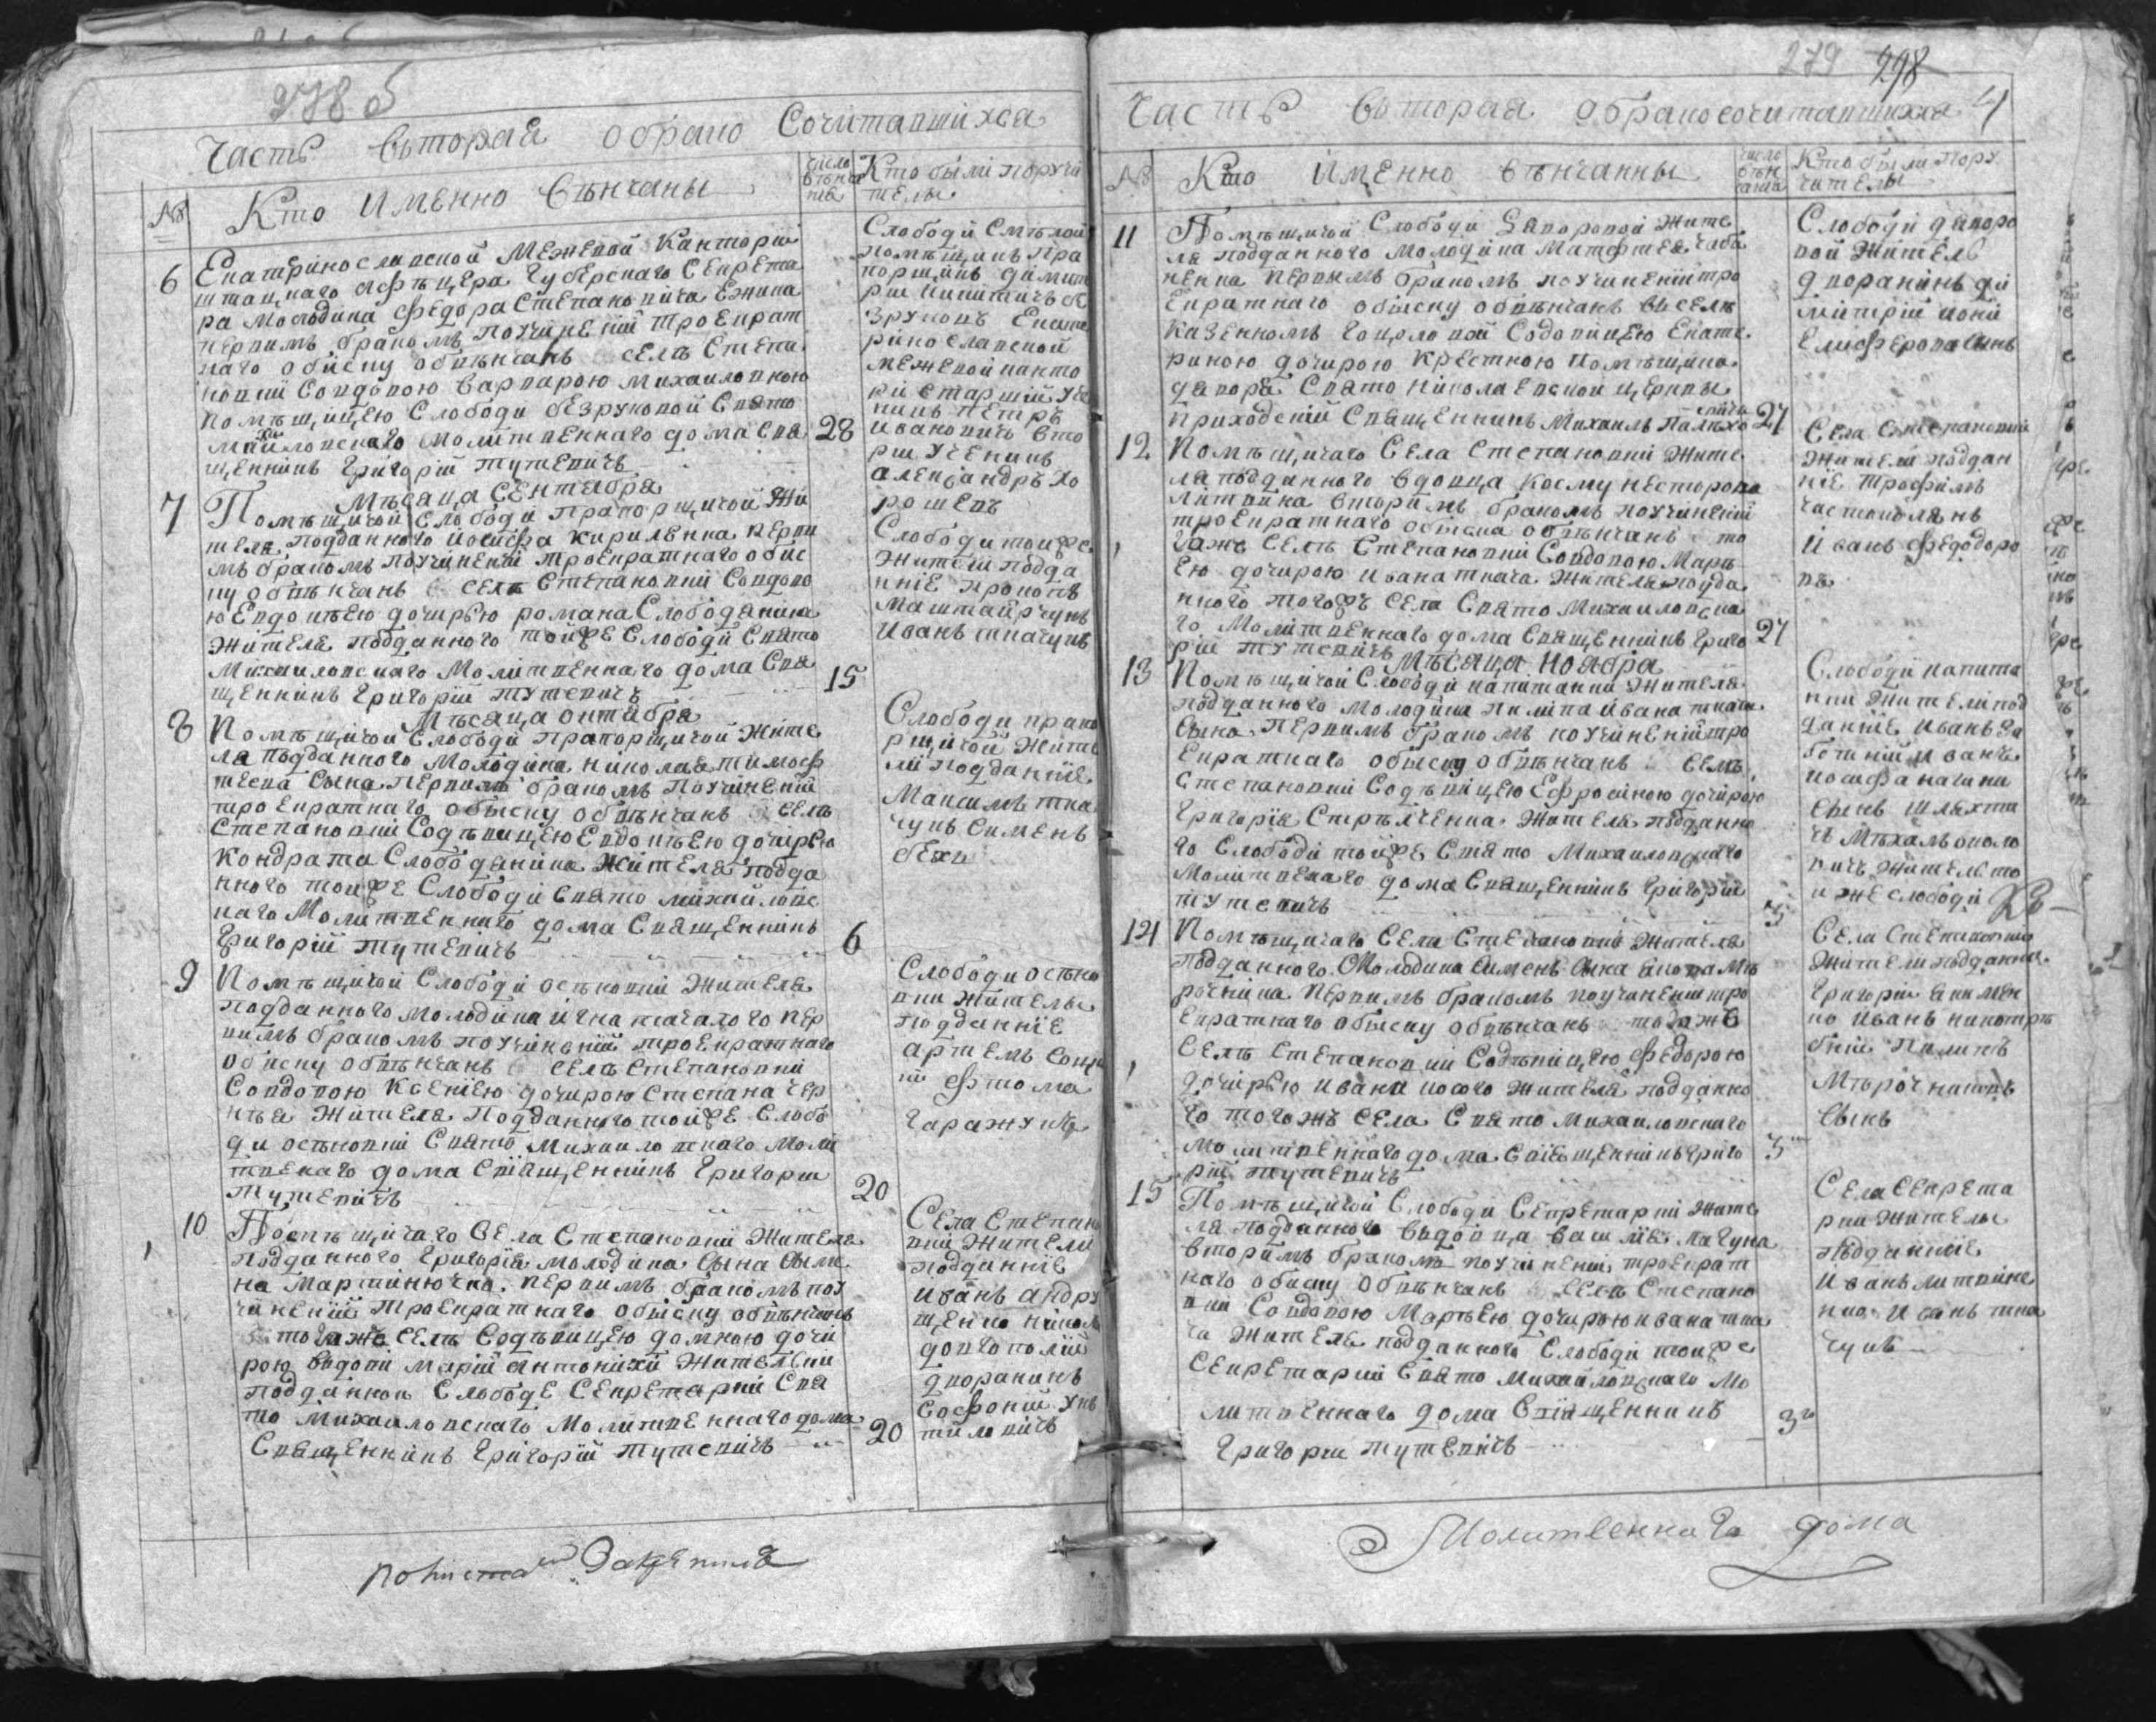 278 б
Часть вьторая обрако Сочитавшихся
№ Кто именно вѣнчаны
число вѣнчания
Кто были поручители
6 Екатеринославской Межевой Канторіи
штатнаго Губерскаго Секрета
ра молодика федора Степановича
первимъ бракомъ поучиненіи троекрат
наго обиску обвѣнчанъ селѣ Степа
новки Совдовою варварою михаиловною
помѣщицею Слободи безруковой Свято
михайловскаго молитвеннаго дома Свя
щенникъ Григорій тутевичъ
28
Слободи
помѣщикъ Пра
порщикъ димит
рій
Екате
ринославской
межевой канто
ри старшій уче
никъ петръ
ивановичъ вто
рій ученикъ
александръ хо
рошевъ
Мѣсяца Сентября
7 Помѣщичой Слободи прапорщичой жи
теля подданного йосифа кириленка перви
мъ бракомъ поучиненіи троекратнаго обис
ку обвѣнчанъ селѣ Степановки Совдово
ю Евдокѣею дочирью романа Слободяника
жителя подданного тойже Слободи Свято
Михаиловскаго Молитвеннаго дома Свя
щенникъ Григорій тутевичъ
15
Слободи тоиже
жители подда
нніе прокопъ
иванъ ткачукъ
Мѣсяца октября
8 Помѣщичой Слободи прапорщичой жите
ля подданного Молодика николая тимоф
теева Сына первимъ бракомъ поучиненіи
троекратнаго обыску обвѣнчанъ селѣ
Степановки Содѣвицею Евдокѣею дочирью
кондрата Слободяника жителя подда
нного тоиже Слободи Свято михайловс
каго Молитвеннаго дома Священникъ
Григорій тутевичъ
6
Слободи прапо
рщичой жите
ли подданніе
Максимъ тка
чукъ Сименъ
9 Помѣщичой Слободи осѣковки жителя
подданного молодика пер
вимъ бракомъ поучиненіи троекратнаго
обиску обвѣнчанъ селѣ Степановки
Совдовою ксеніею дочирою Степана
жителя подданного тоиже Слобо
ди осѣковки Свято Михаиловскаго Моли
твенаго дома Священникъ Григории
тутевичъ
20
Слободи осѣко
вки жители
подданніе
артемъ
фтома
гаражукъ
10 Помѣщичаго Села Степановки жителя
подданного Григорія молодика Сына
на мартинючка первимъ бракомъ поу
чиненіи троекратнаго обыску обвѣнчанъ
тогажъ селѣ Содѣвицею домною дочи
рою вьдови маріи антонихи жителки
подданнои Слободе Секретарки Свя
то михаиловскаго Молитвеннаго дома
Священникъ Григорій тутевичъ
20
Села Степано
вки жители
подданніе
иванъ андру
щенко никол
дворянинъ
Софоній
по листамъ Закрепилъ
279 298
Часть вьторая обракосочитавшихся 4
№ Кто именно вѣнчанны
число вѣнчания
Кто были поручители
11 Помѣщичой Слободи Запоровой жите
ля подданного Молодика Матфтея
ненка первымъ бракомъ поучиненіи тро
екратнаго обыску обвѣнчанъ вь селѣ
казенномъ Содовицею Екате
риною дочирою крестною помѣщика
запоры Свято николаевской церквы
приходскій Священникъ Михаилъ
27
Слободи запоро
вой житель
дворянинъ ди
митрій
12 Помѣщичаго Села Степановки жите
ля подданного вдовца косму несторова
литвина вторимъ бракомъ поучиненіи
троекратнаго обыска обвѣнчанъ то
гажъ селѣ Степановки Совдовою Марѣ
ею дочирою ивана ткача жителя подда
нного тогожъ села Свято Михаиловска
го Молитвеннаго дома Священникъ Григо
рій тутевичъ
27
Села Степановки
жители поддан
ніе трофимъ
частоколянъ
иванъ федодоро
въ
Мѣсяца ноября
13 Помѣщичой Слободи капитанки жителя
подданного молодика пилипа ивана ткача
сына первимъ бракомъ поучиненіи тро
екратнаго обыску обвѣнчанъ селѣ
Степановки Содѣвицею Ефросиною дочирою
Григорія Стрѣлченка жителя подданно
го Слободи тоиже Свято Михаиловскаго
Молитвенаго дома Священникъ Григорій
тутевичъ
Слободи капита
нки жители под
данніе иванъ
сынъ шляхти
чъ
житель то
иже слободи
14 Помѣщичаго Села Степановки жителя
подданного Молодика Сименъ сына
первимъ бракомъ поучиненіи тро
екратнаго обыску обвѣнчанъ тогожъ
селѣ Степановки Содѣвицею федорою
дочирью ивана косого жителя подданно
го тогожъ села Свято михаиловскаго
молитвеннаго дома Священникъ Григо
рій тутевичъ
Села Степановки
жители подданіе
Григорій
иванъ
Мѣрочниковъ
сынъ
15 Помѣщичой Слободи Секретарки жите
ля подданного вьдовца василія
вторимъ бракомъ поучиненіи троекрат
наго обиску обвѣнчанъ селѣ Степано
вки Совдовою Марѣею дочирою ивана тка
ча жителя подданного Слободи тоиже
Секретарки Свято михайловскаго Мо
литвеннаго дома Священникъ
Григории тутевичъ
Села Секрета
рки жители
подданніе
иванъ литвине
нко иванъ тка
чукъ
Молитвеннаго дома